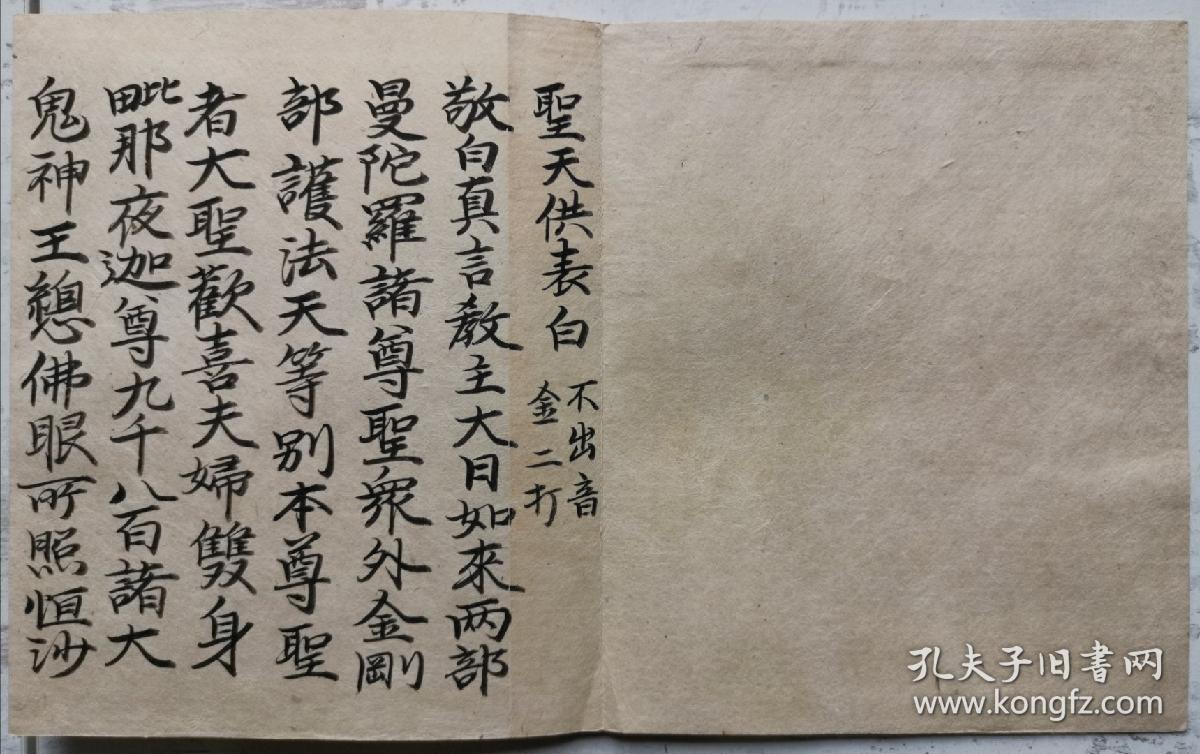 聖天供表白 不出音
金二打
敬白真言教主大日如來两部
曼陀羅諸尊聖衆外金剛
部護法天等別本尊聖
者大聖歡喜夫婦雙身
毗那夜迦尊九千八百諸大
鬼神王摠佛眼所照恒沙
孔夫子旧書网
www.kongfz.com